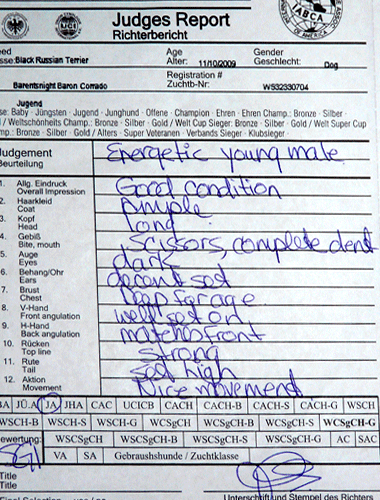 Judges Report
Richterbericht
UCI
IABCA
OF AMERICA
Black Russian Terrier
Age
Alter: 11/10/2009
Gender
Geschlecht: Dog
Barentsnight Baron Comado
Registration #
Zuchtb-Nr: W532330704
Jugend
se: Baby · Jüngsten · Jugend · Junghund · Offene · Champion · Ehren · Ehren Champ.: Bronze · Silber ·
/ Weltschönheits Champ.: Bronze · Silber · Gold / Welt Cup Sieger: Bronze · Silber · Gold / Welt Super Cup
mp.: Bronze · Silber · Gold / Alters · Super Veteranen · Verbands Sieger · Klubsieger ·
Judgement
Beurteilung
Energetic young male
1. Allg. Eindruck
Overall Impression
Good condition
2. Haarkleid
Coat
3. Kopf
Head
Long
4. Gebiß
Bite, mouth
Scissors, complete dent
5. Auge
Eyes
dark
6. Behang/Ohr
Ears
decent set
7. Brust
Chest
deep for age
8. V-Hand
Front angulation
well set on
9. H-Hand
Back angulation
matches front
10. Rücken
Top line
Strong
11. Rute
Tail
set high
12. Aktion
Movement
Nice movement
BA JÜ.A JA JHA CAC UCICB CACH CACH-B CACH-S CACH-G WSCH
WSCH-B WSCH-S WSCH-G WCSgCH WCSgCH-B WCSgCH-S WCSgCH-G
Bewertung: WSCSgCH WSCSgCH-B WSCSgCH-S WSCSgCH-G AC SAC
SG1 VA SA Gebraushunde / Zuchtklasse
Title
Title
Unterschrift und Stempel des Richters